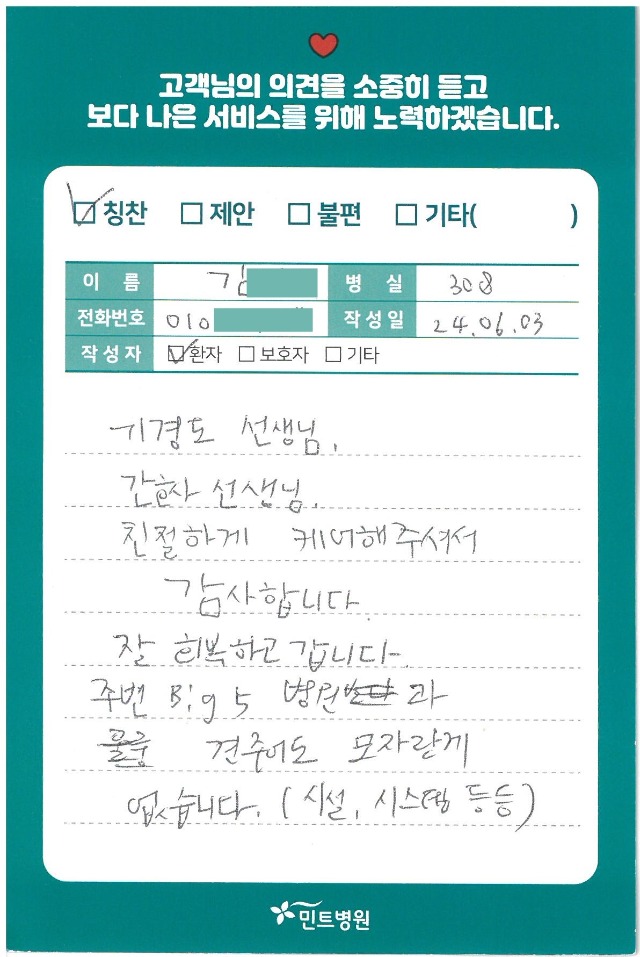 고객님의 의견을 소중히 듣고
보다 나은 서비스를 위해 노력하겠습니다.
칭찬 제안 불편 기타( )
이 름 김 병 실 308
전화번호 010 작성일 24.06.03
작성자 환자 보호자 기타
기경도 선생님.
간호사 선생님.
친절하게 케어해주셔서
감사합니다.
잘 회복하고 갑니다.
주변 Big 5 병원 과
견주어도 모자란게
없습니다. (시설, 시스템 등등)
민트병원